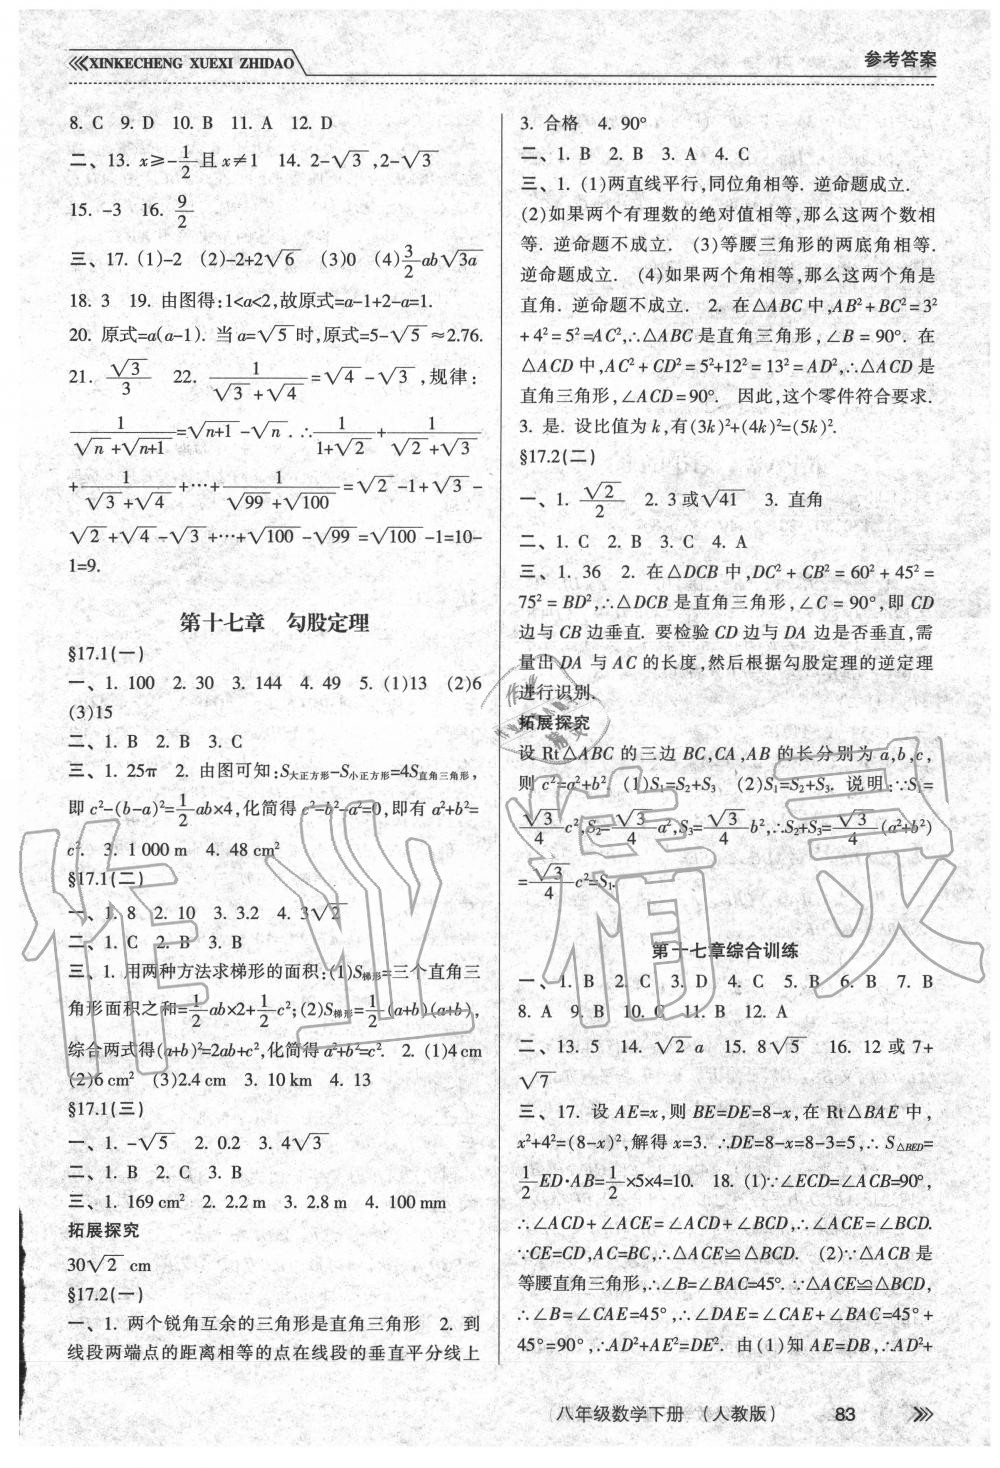 XINKECHENG XUEXI ZHIDAO
参考答案
8. C 9. D 10. B 11. A 12. D
二、13. x≥-1/2且x≠1 14. 2-√3,2-√3
15. -3 16. 9/2
三、17. (1)-2 (2)-2+2√6 (3)0 (4)3/2ab√3a
18. 3 19. 由图得:1<a<2,故原式=a-1+2-a=1.
20. 原式=a(a-1). 当a=√5时,原式=5-√5≈2.76.
21. √3/3 22. 1/(√3+√4)=√4-√3,规律:
1/(√n+√n+1)=√n+1-√n.∴1/(1+√2)+1/(√2+√3)
+1/(√3+√4)+⋯+1/(√99+√100)=√2-1+√3-
√2+√4-√3+⋯+√100-√99=√100-1=10-
1=9.
第十七章 勾股定理
§17.1(一)
一、1. 100 2. 30 3. 144 4. 49 5. (1)13 (2)6
(3)15
二、1. B 2. B 3. C
三、1. 25π 2. 由图可知:S大正方形-S小正方形=4S直角三角形,
即c²-(b-a)²=1/2ab×4,化简得c²-b²-a²=0,即有a²+b²=
c². 3. 1 000 m 4. 48 cm²
§17.1(二)
一、1. 8 2. 10 3. 3.2 4. 3√2
二、1. C 2. B 3. B
三、1. 用两种方法求梯形的面积:(1)S梯形=三个直角三
角形面积之和=1/2ab×2+1/2c²;(2)S梯形=1/2(a+b)(a+b),
综合两式得(a+b)²=2ab+c²,化简得a²+b²=c². 2. (1)4 cm
(2)6 cm² (3)2.4 cm 3. 10 km 4. 13
§17.1(三)
一、1. -√5 2. 0.2 3. 4√3
二、1. B 2. C 3. B
三、1. 169 cm² 2. 2.2 m 3. 2.8 m 4. 100 mm
拓展探究
30√2 cm
§17.2(一)
一、1. 两个锐角互余的三角形是直角三角形 2. 到
线段两端点的距离相等的点在线段的垂直平分线上
3. 合格 4. 90°
二、1. B 2. B 3. A 4. C
三、1. (1)两直线平行,同位角相等. 逆命题成立.
(2)如果两个有理数的绝对值相等,那么这两个数相
等. 逆命题不成立. (3)等腰三角形的两底角相等.
逆命题成立. (4)如果两个角相等,那么这两个角是
直角. 逆命题不成立. 2. 在△ABC中,AB²+BC²=3²
+4²=5²=AC²,∴△ABC是直角三角形,∠B=90°. 在
△ACD中,AC²+CD²=5²+12²=13²=AD²,∴△ACD是
直角三角形,∠ACD=90°. 因此,这个零件符合要求.
3. 是. 设比值为k,有(3k)²+(4k)²=(5k)².
§17.2(二)
一、1. √2/2 2. 3或√41 3. 直角
二、1. C 2. B 3. C 4. A
三、1. 36 2. 在△DCB中,DC²+CB²=60²+45²=
75²=BD²,∴△DCB是直角三角形,∠C=90°,即CD
边与CB边垂直. 要检验CD边与DA边是否垂直,需
量出DA与AC的长度,然后根据勾股定理的逆定理
进行识别.
拓展探究
设Rt△ABC的三边BC,CA,AB的长分别为a,b,c,
则c²=a²+b². (1)S₁=S₂+S₃ (2)S₁=S₂+S₃. 说明:∵S₁=
√3/4c²,S₂=√3/4a²,S₃=√3/4b²,∴S₂+S₃=√3/4(a²+b²)
=√3/4c²=S₁.
第十七章综合训练
一、1. B 2. C 3. D 4. C 5. B 6. B 7. B
8. A 9. B 10. C 11. B 12. A
二、13. 5 14. √2a 15. 8√5 16. 12或7+
√7
三、17. 设AE=x,则BE=DE=8-x,在Rt△BAE中,
x²+4²=(8-x)²,解得x=3. ∴DE=8-x=8-3=5,∴S△BED=
1/2ED·AB=1/2×5×4=10. 18. (1)∵∠ECD=∠ACB=90°,
∴∠ACD+∠ACE=∠ACD+∠BCD,∴∠ACE=∠BCD.
∵CE=CD,AC=BC,∴△ACE≌△BCD. (2)∵△ACB是
等腰直角三角形,∴∠B=∠BAC=45°. ∵△ACE≌△BCD,
∴∠B=∠CAE=45°,∴∠DAE=∠CAE+∠BAC=45°+
45°=90°,∴AD²+AE²=DE². 由(1)知AE=DB,∴AD²+
八年级数学下册 (人教版) 83
作业精灵